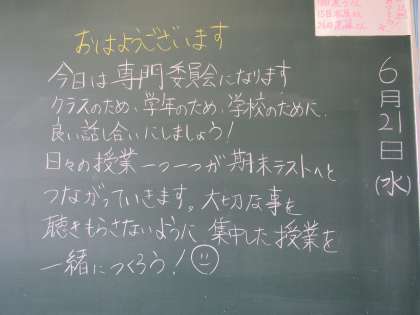 おはようございます
今日は専門委員会になります
クラスのため、学年のため、学校のために、
良い話し合いにしましょう!
日々の授業一つ一つが期末テストへと
つながっていきます。大切な事を
聴きもらさないように集中した授業を
一緒につくろう!
6月21日(水)